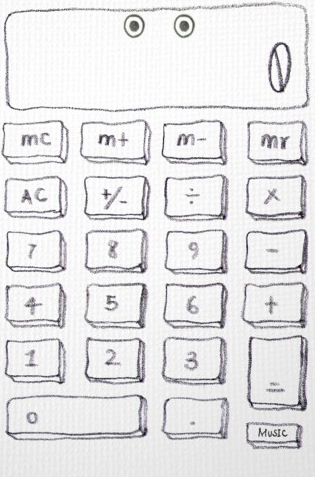 0
mc m+ m- mr
AC +/- ÷ ×
7 8 9 -
4 5 6 +
1 2 3
=
0 .
MUSIC